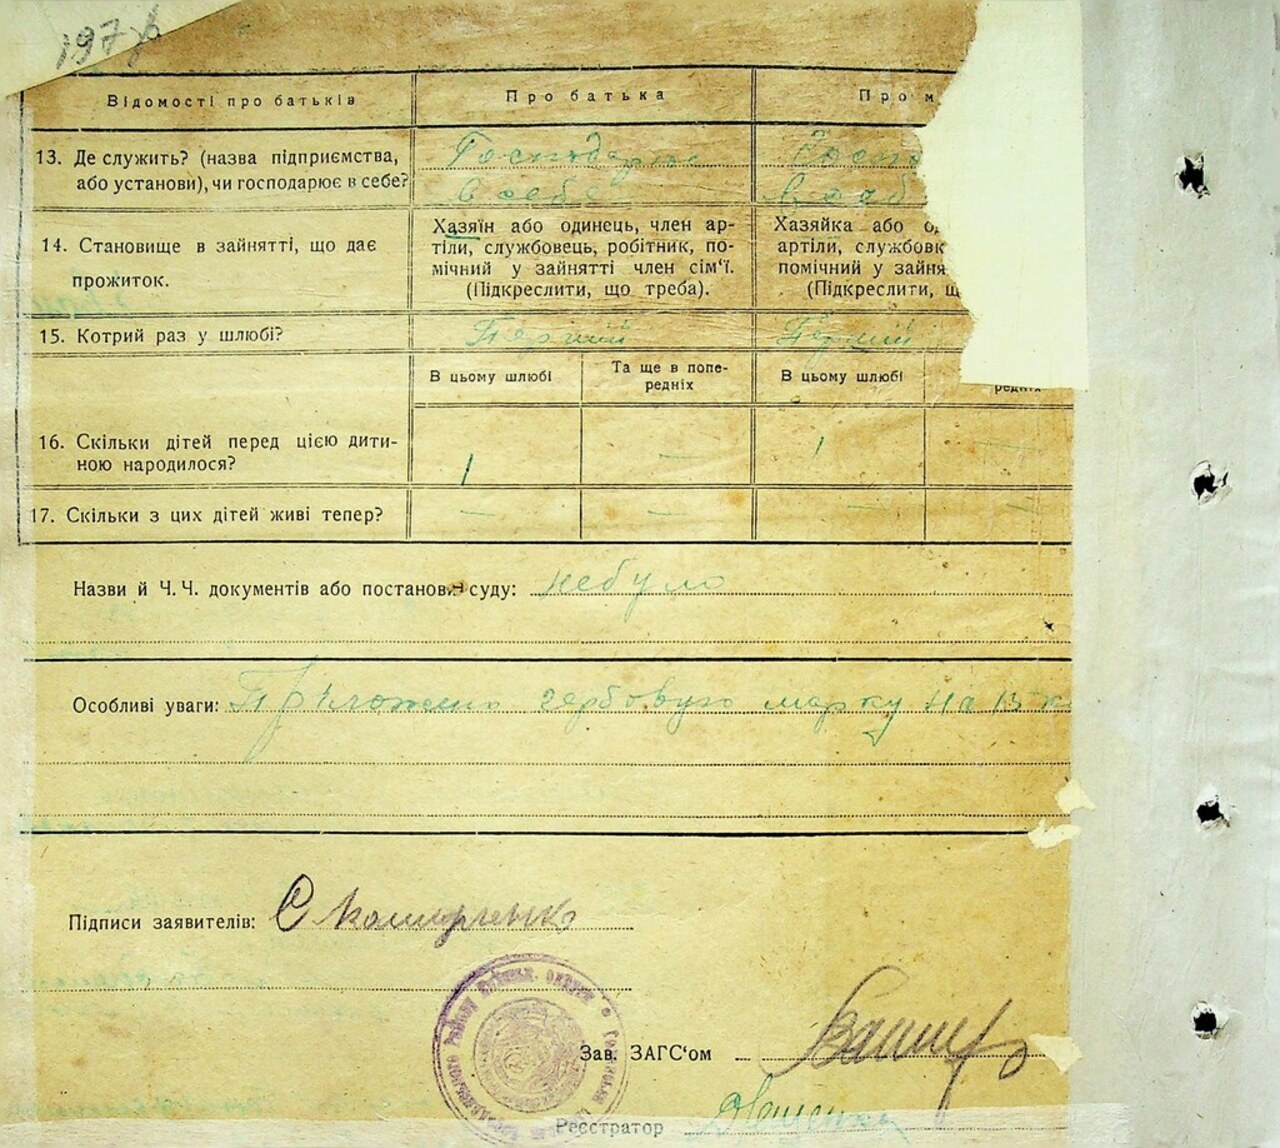 197
Відомості про батьків
Про батька
Про м
13. Де служить? (назва підприємства,
або установи), чи господарює в себе?
Господарює
в себе
Госпо
в себ
14. Становище в зайнятті, що дає
прожиток.
Хазяїн або одинець, член ар-
тіли, службовець, робітник, по-
мічний у зайнятті член сім'ї.
(Підкреслити, що треба).
Хазяйка або о
артіли, службовк
помічний у зайня
(Підкреслити, щ
15. Котрий раз у шлюбі?
Перший
Перший
В цьому шлюбі
Та ще в попе-
редніх
В цьому шлюбі
редніх
16. Скільки дітей перед цією дити-
ною народилося?
1 — 1 —
17. Скільки з цих дітей живі тепер?
— — — —
Назви й Ч. Ч. документів або постанови суду: небуло
Особливі уваги: Приложено гербовую марку на 15 к
Підписи заявителів:
Зав. ЗАГС'ом
Реєстратор